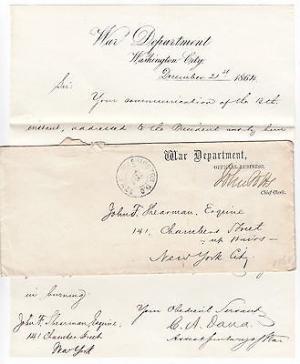 War Department
Washington City,
December 21st 1864
Sir:
Your communication of the 12th
instant, addressed to the President
War Department,
OFFICIAL BUSINESS.
Chief Clerk.
John F. Shearman, Esquire
141, Chambers Street
up stairs
New York City.
in burning
Your Obedient Servant
John F. Shearman Esquire,
C. A. Dana
141 Chambers Street
Assist Secretary of War
New York